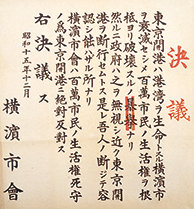 決議
東京開港ハ港湾ヲ生命トスル横濱市
ヲ衰滅セシメ百萬市民ノ生活權ヲ根
柢ヨリ破壊スル
然ルニ政府ハ之ヲ無視シ近ク東京開
港ヲ断行セムトス是レ吾人ノ断ジテ容
認シ能ハザル所ナリ
横濱市會ハ百萬市民ノ生活權死守
ノ為東京開港ニ絶對反對ス
右決議ス
昭和十五年十二月
横濱市會